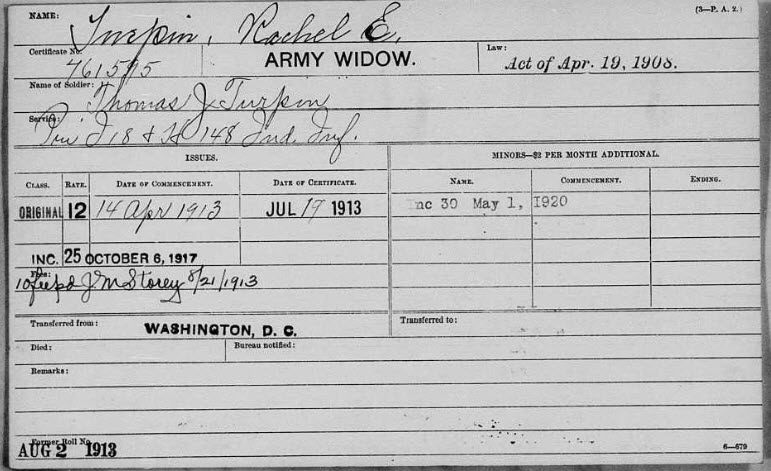 (3—P. A. 2.)
NAME: Turpin, Rachel E.
Certificate No. 761575
ARMY WIDOW.
Law: Act of Apr. 19, 1908.
Name of Soldier: Thomas J Turpin
Service: Pvt I 18 & H 148 Ind. Inf.
ISSUES.
MINORS—$2 PER MONTH ADDITIONAL.
CLASS. RATE. DATE OF COMMENCEMENT. DATE OF CERTIFICATE. NAME. COMMENCEMENT. ENDING.
ORIGINAL 12 14 Apr 1913 JUL 19 1913 Inc 30 May 1, 1920
INC. 25 OCTOBER 6, 1917
Fees:
10 fee pd J M Storey 8/21/1913
Transferred from: WASHINGTON, D. C. Transferred to:
Died: Bureau notified:
Remarks:
Former Roll No.
AUG 2 1913
6—679